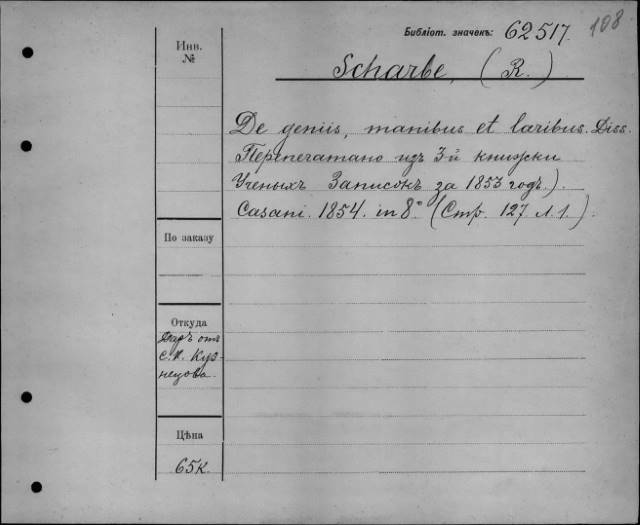 Библіот. значекъ: 62517. 108
Инв. №
Scharbe, (R.)
De geniis, manibus et laribus. Diss.
Перепечатано изъ 3-й книжки
Ученыхъ Записокъ за 1853 годъ.)
Casani. 1854. in 8° (Стр. 127 л. 1.)
По заказу
Откуда
Даръ отъ
С. К. Куз-
нецова.
Цѣна
65 к.